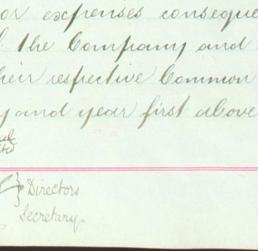 or expenses conseque
the Company and
heir respective Common
y and year first above
Directors
Secretary